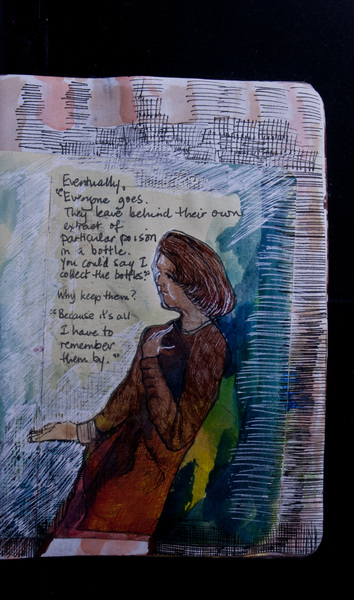 Eventually,
"Everyone goes.
They leave behind their own
extract of
particular poison
in a bottle.
You could say I
collect the bottles."
Why keep them?
"Because it's all
I have to
remember
them by."